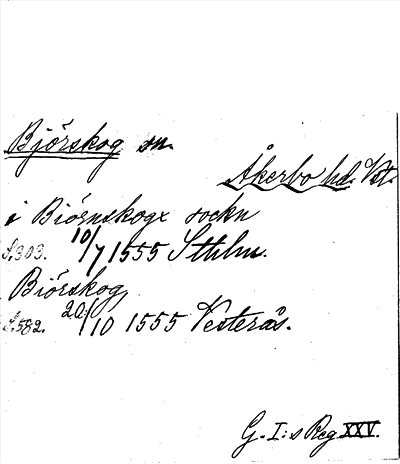 Björskog sn.
Åkerbo hd. Vstm.
i Biörnskogx sockn
S.303. 10/7 1555 Sthlm.
Biörskog
S.582. 20/10 1555 Vesterås.
G. I:s Reg XXV.